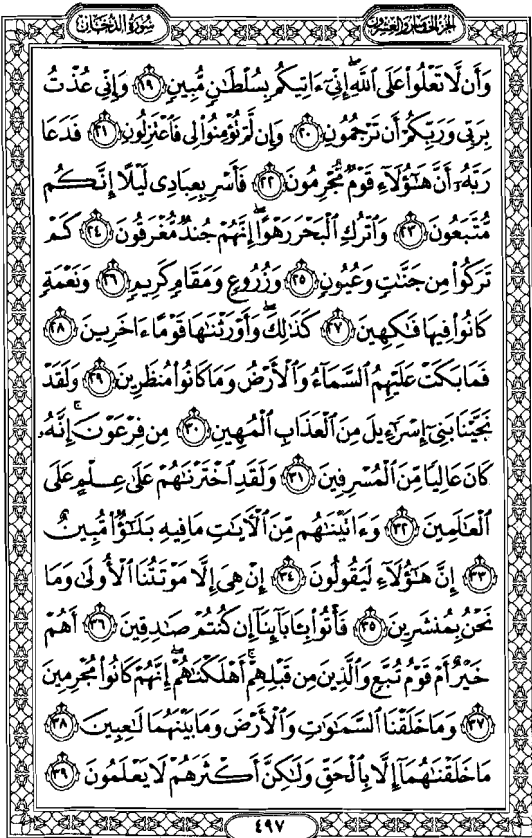 الجزء الخامس والعشرون
سورة الدخان
وَأَن لَّا تَعْلُوا۟ عَلَى ٱللَّهِ إِنِّىٓ ءَاتِيكُم بِسُلْطَـٰنٍ مُّبِينٍ ١٩ وَإِنِّى عُذْتُ
بِرَبِّى وَرَبِّكُمْ أَن تَرْجُمُونِ ٢٠ وَإِن لَّمْ تُؤْمِنُوا۟ لِى فَٱعْتَزِلُونِ ٢١ فَدَعَا
رَبَّهُۥٓ أَنَّ هَـٰٓؤُلَآءِ قَوْمٌ مُّجْرِمُونَ ٢٢ فَأَسْرِ بِعِبَادِى لَيْلًا إِنَّكُم
مُّتَّبَعُونَ ٢٣ وَٱتْرُكِ ٱلْبَحْرَ رَهْوًا إِنَّهُمْ جُندٌ مُّغْرَقُونَ ٢٤ كَمْ
تَرَكُوا۟ مِن جَنَّـٰتٍ وَعُيُونٍ ٢٥ وَزُرُوعٍ وَمَقَامٍ كَرِيمٍ ٢٦ وَنَعْمَةٍ
كَانُوا۟ فِيهَا فَـٰكِهِينَ ٢٧ كَذَٰلِكَ وَأَوْرَثْنَـٰهَا قَوْمًا ءَاخَرِينَ ٢٨
فَمَا بَكَتْ عَلَيْهِمُ ٱلسَّمَآءُ وَٱلْأَرْضُ وَمَا كَانُوا۟ مُنظَرِينَ ٢٩ وَلَقَدْ
نَجَّيْنَا بَنِىٓ إِسْرَٰٓءِيلَ مِنَ ٱلْعَذَابِ ٱلْمُهِينِ ٣٠ مِن فِرْعَوْنَ إِنَّهُۥ
كَانَ عَالِيًا مِّنَ ٱلْمُسْرِفِينَ ٣١ وَلَقَدِ ٱخْتَرْنَـٰهُمْ عَلَىٰ عِلْمٍ عَلَى
ٱلْعَـٰلَمِينَ ٣٢ وَءَاتَيْنَـٰهُم مِّنَ ٱلْـَٔايَـٰتِ مَا فِيهِ بَلَـٰٓؤٌا۟ مُّبِينٌ
٣٣ إِنَّ هَـٰٓؤُلَآءِ لَيَقُولُونَ ٣٤ إِنْ هِىَ إِلَّا مَوْتَتُنَا ٱلْأُولَىٰ وَمَا
نَحْنُ بِمُنشَرِينَ ٣٥ فَأْتُوا۟ بِـَٔابَآئِنَآ إِن كُنتُمْ صَـٰدِقِينَ ٣٦ أَهُمْ
خَيْرٌ أَمْ قَوْمُ تُبَّعٍ وَٱلَّذِينَ مِن قَبْلِهِمْ أَهْلَكْنَـٰهُمْ إِنَّهُمْ كَانُوا۟ مُجْرِمِينَ
٣٧ وَمَا خَلَقْنَا ٱلسَّمَـٰوَٰتِ وَٱلْأَرْضَ وَمَا بَيْنَهُمَا لَـٰعِبِينَ ٣٨
مَا خَلَقْنَـٰهُمَآ إِلَّا بِٱلْحَقِّ وَلَـٰكِنَّ أَكْثَرَهُمْ لَا يَعْلَمُونَ ٣٩
٤٩٧